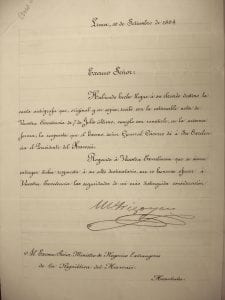 Lima, 10 de Setiembre de 1894.
Excmo Señor:
Habiendo hecho llegar á su elevado destino la
carta autógrafa que, original y en copia, venía con la estimable nota de
Vuestra Excelencia de 7 de Julio último, cumplo con remitirle, en la misma
forma, la respuesta que el Excmo. señor General Cáceres dá á Su Excelencia
el Presidente del Hawaii.
Ruego á Vuestra Excelencia que se sirva
entregar dicha respuesta á su alto destinatario, me es honroso ofrecer á
Vuestra Excelencia las seguridades de mi más distinguida consideración.
Al Excmo. Señor Ministro de Negocios Extrangeros
de la República del Hawaii.
Honolulu.